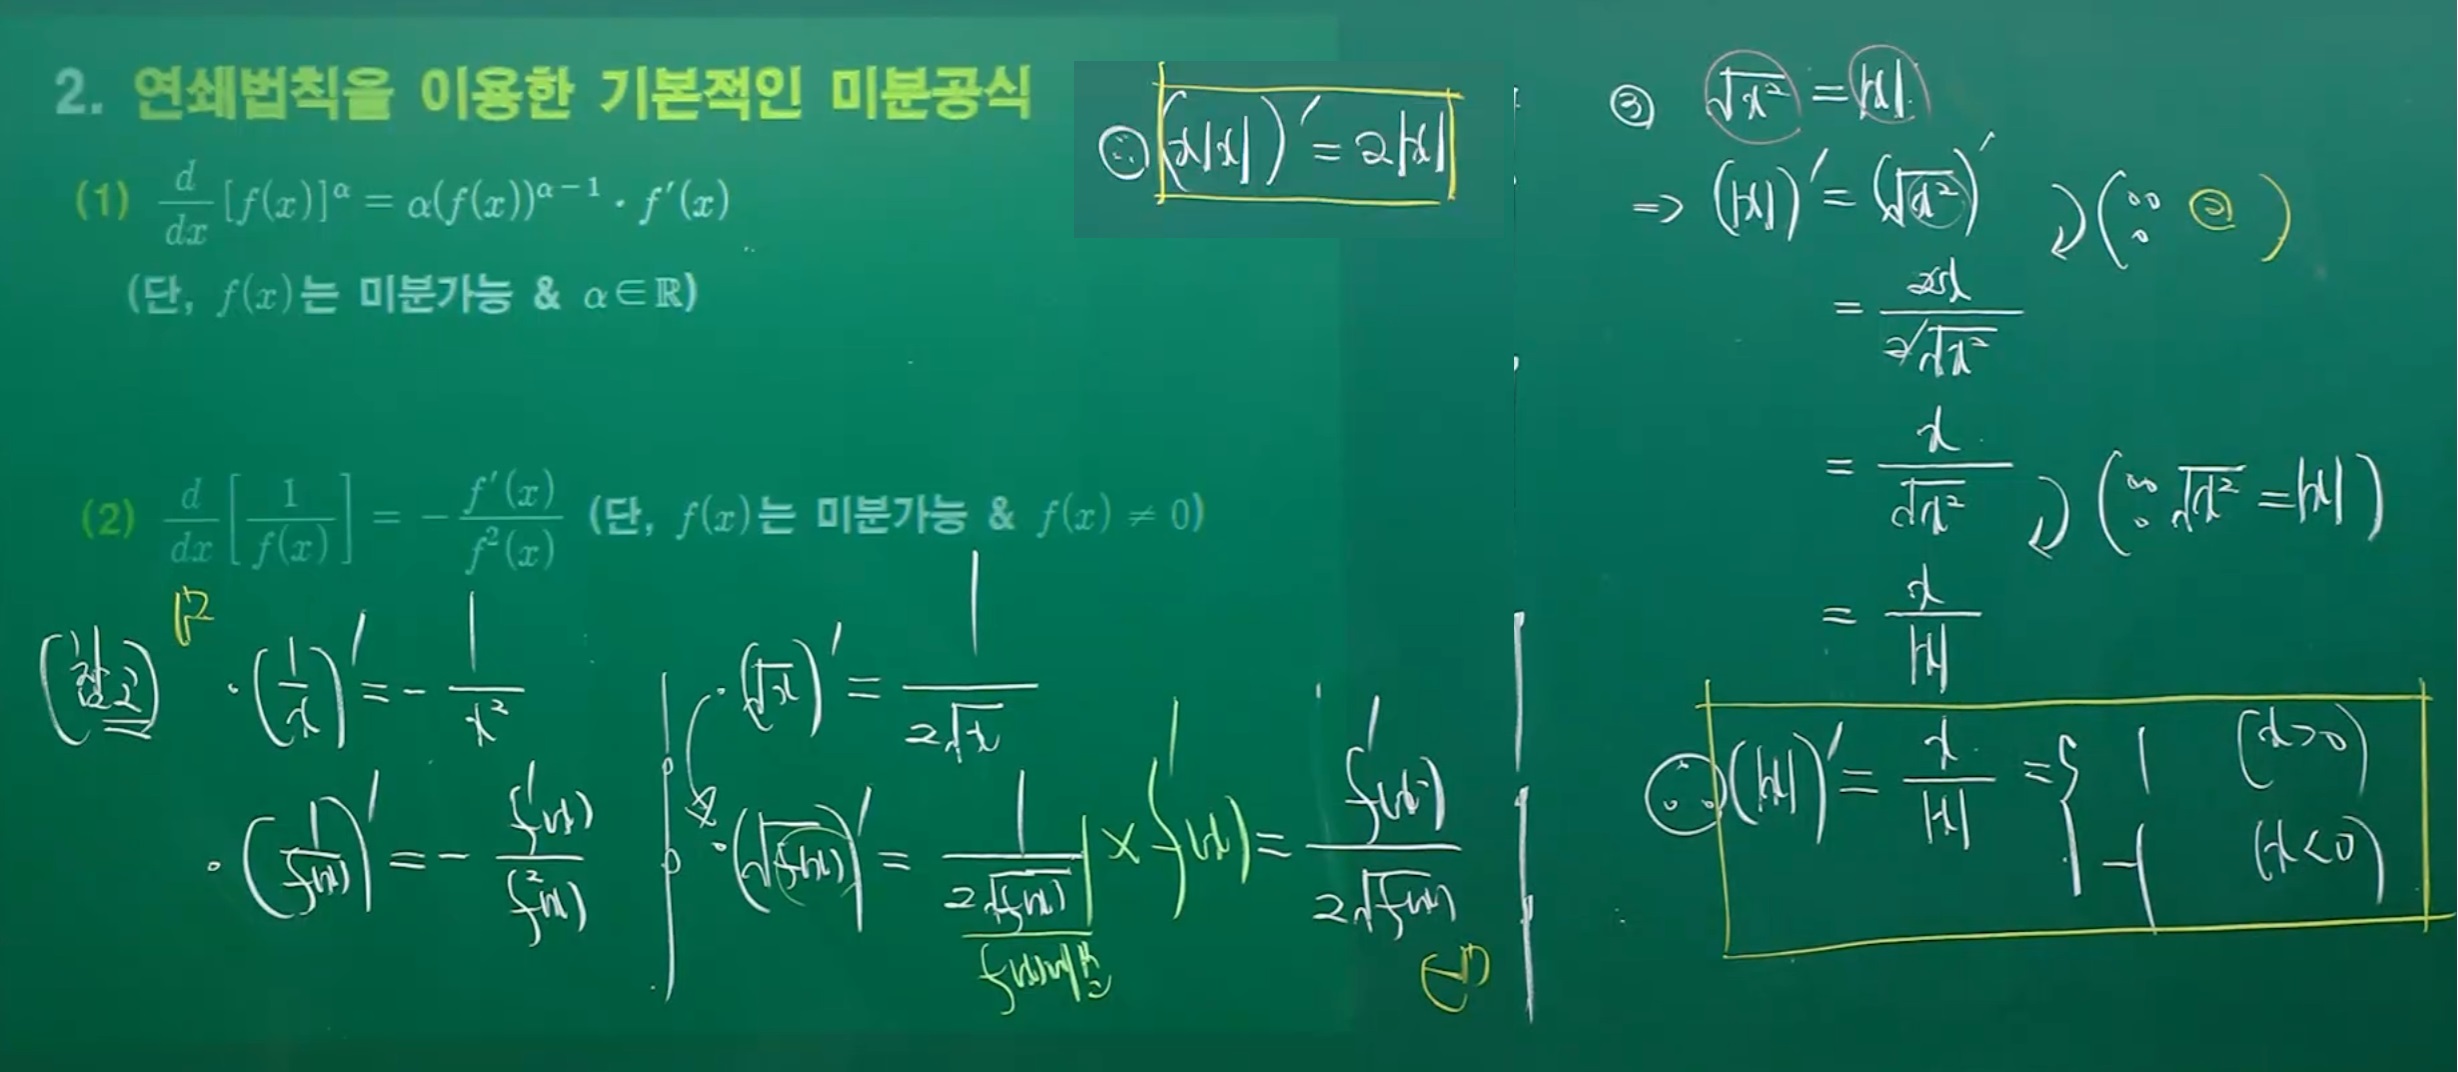 2. 연쇄법칙을 이용한 기본적인 미분공식
(1) d/dx [f(x)]^α = α(f(x))^(α-1) · f'(x)
(단, f(x)는 미분가능 & α∈ℝ)
(2) d/dx [1/f(x)] = - f'(x)/f²(x) (단, f(x)는 미분가능 & f(x) ≠ 0)
· (1/x)' = - 1/x²
· (1/f(x))' = - f'(x)/f²(x)
· (√x)' = 1/(2√x)
· (√f(x))' = 1/(2√f(x)) × f'(x) = f'(x)/(2√f(x))
∴ (x|x|)' = 2|x|
③ √x² = |x|
⇒ (|x|)' = (√x²)' (∵ ②)
= 2x/(2√x²)
= x/√x² (∵ √x² = |x|)
= x/|x|
∴ (|x|)' = x/|x| = { 1 (x>0)
-1 (x<0)